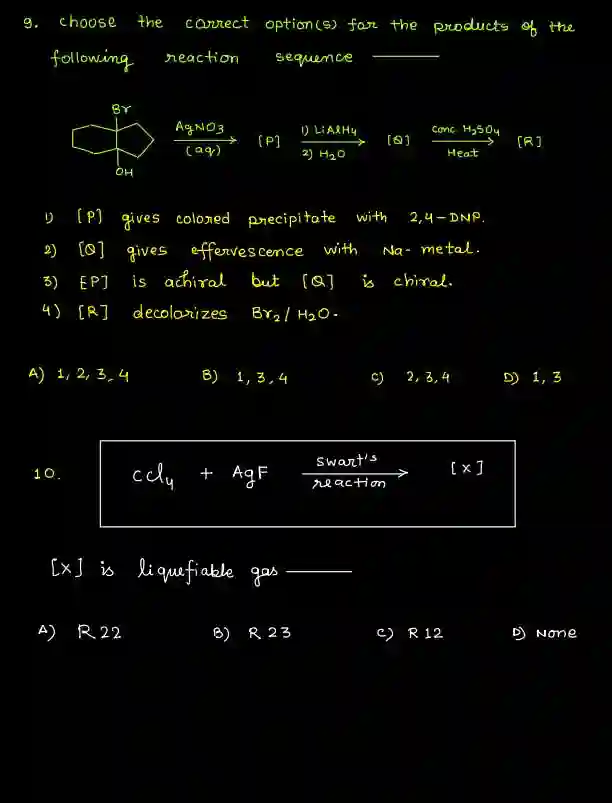 9. choose the correct option(s) for the products of the
following reaction sequence ———
Br
OH
AgNO3
(aq)
[P]
1) LiAlH4
2) H2O
[Q]
conc. H2SO4
Heat
[R]
1) [P] gives colored precipitate with 2,4-DNP.
2) [Q] gives effervescence with Na-metal.
3) [P] is achiral but [Q] is chiral.
4) [R] decolorizes Br2/H2O.
A) 1, 2, 3, 4 B) 1, 3, 4 C) 2, 3, 4 D) 1, 3
10.
CCl4 + AgF
Swart's
reaction
[X]
[X] is liquefiable gas ———
A) R 22 B) R 23 C) R 12 D) None